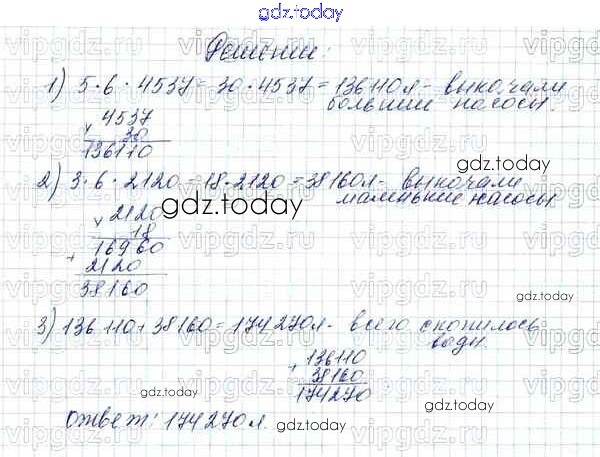 gdz.today
Решение:
1) 5·6·4537=30·4537=136110л- выкачали
большие насосы.
× 4537
30
136110
gdz.today
2) 3·6·2120=18·2120=38160л- выкачали
маленькие насосы
gdz.today
× 2120
18
16960
+ 2120
38160
gdz.today
3) 136110+38160=174270л- всего скопилось
воды
+ 136110
38160
174270
gdz.today
gdz.today
Ответ: 174270л.
vipgdz.ru